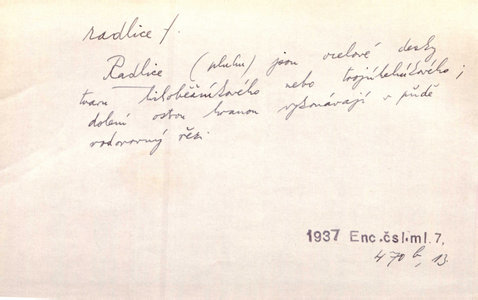 radlice f.
Radlice (pluhu) jsou ocelové desky
tvaru lichoběžníkového nebo trojúhelníkového;
dolení ostrou hranou vykonávají v půdě
vodorovný řez.
1937 Enc.čsl.ml.7,
470 b, 13